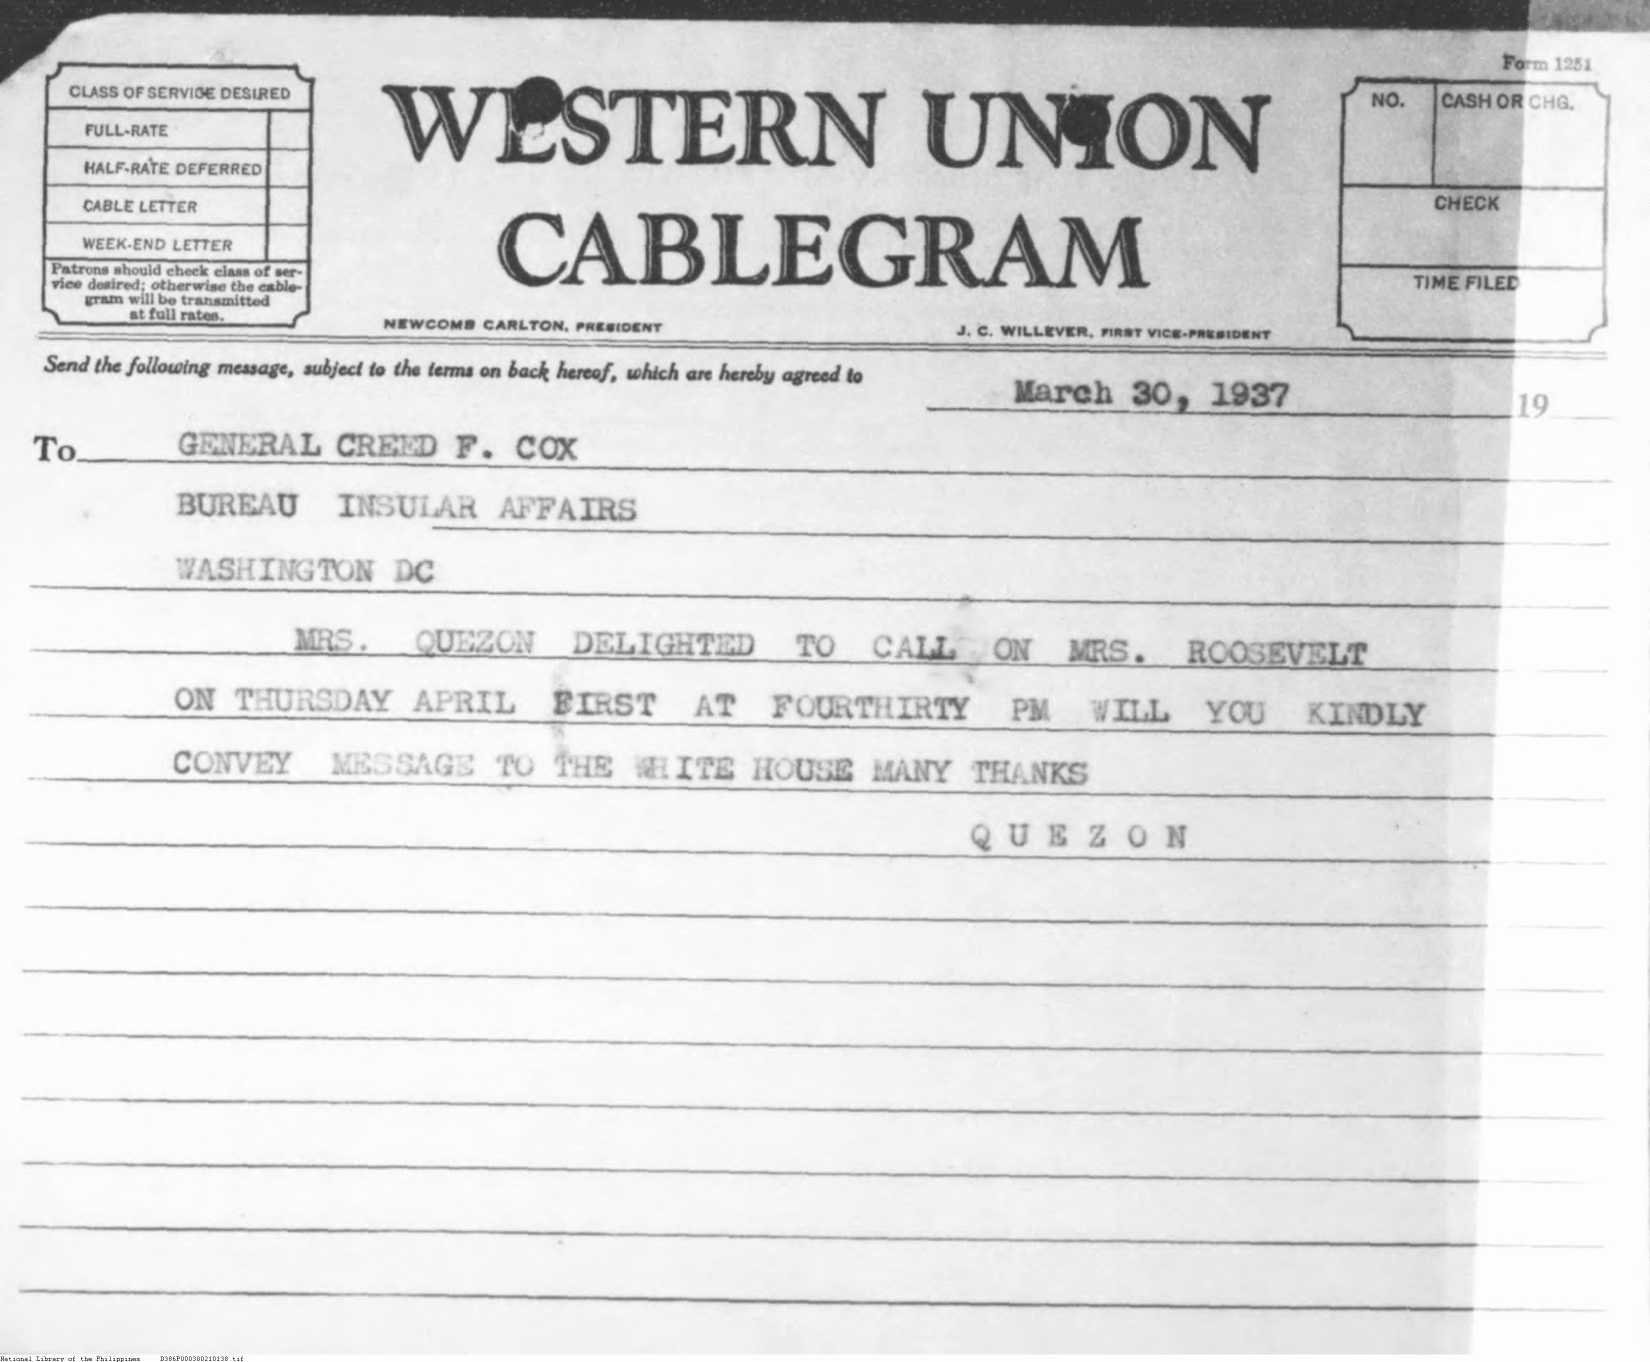 Form 1251
CLASS OF SERVICE DESIRED
FULL-RATE
HALF-RATE DEFERRED
CABLE LETTER
WEEK-END LETTER
Patrons should check class of ser-
vice desired; otherwise the cable-
gram will be transmitted
at full rates.
WESTERN UNION
CABLEGRAM
NEWCOMB CARLTON, PRESIDENT
J. C. WILLEVER, FIRST VICE-PRESIDENT
NO.
CASH OR CHG.
CHECK
TIME FILED
Send the following message, subject to the terms on back hereof, which are hereby agreed to
March 30, 1937 19
To GENERAL CREED F. COX
BUREAU INSULAR AFFAIRS
WASHINGTON DC
MRS. QUEZON DELIGHTED TO CALL ON MRS. ROOSEVELT
ON THURSDAY APRIL FIRST AT FOURTHIRTY PM WILL YOU KINDLY
CONVEY MESSAGE TO THE WHITE HOUSE MANY THANKS
Q U E Z O N
National Library of the Philippines D386P000300210138.tif